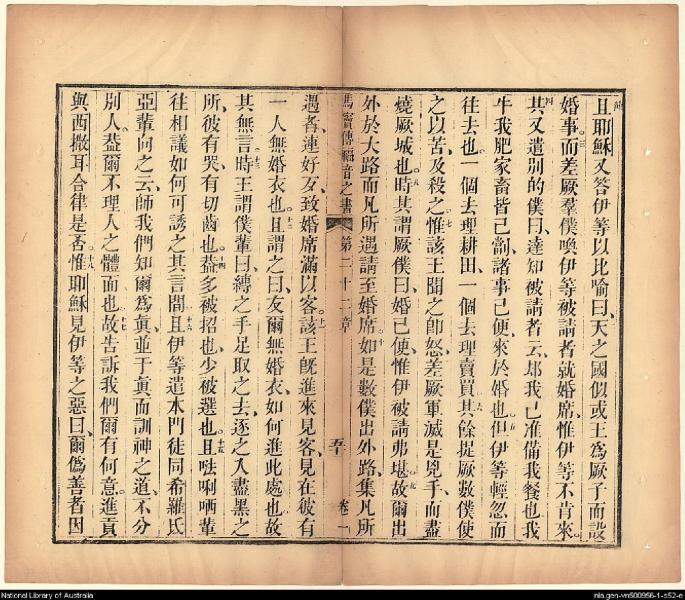 且耶穌又答伊等以比喻曰、天之國似或王爲厥子而設
婚事。三而差厥羣僕喚伊等被請者就婚席、惟伊等不肯來。
四其又遣別的僕曰、達知被請者云、却我已准備我餐也、我
牛我肥家畜皆已劏、諸事已便、來於婚也。五但伊等輕忽而
往去也、一個去理耕田、一個去理賣買。六其餘捉厥數僕使
之以苦、及殺之。七惟該王聞之卽怒、差厥軍滅是兇手、而盡
燒厥城也。八時其謂厥僕曰、婚已便、惟伊被請弗堪。九故爾出
外於大路、而凡所遇請至婚席。十如是數僕出外路、集凡所
馬竇傳福音之書 第二十二章 五十 卷一
遇者、連好歹、致婚席滿以客。十一該王旣進來見客、見在彼有
一人無婚衣也。十二且謂之曰、友、爾無婚衣、如何進此處也、故
其無言。十三時王謂僕輩曰、縛之手足、取之去、逐之入盡黑之
所、彼有哭有切齒也。十四蓋多被招也、少被選也。十五且𠵽唎哂輩
往相議如何可誘之其言間。十六且伊等遣本門徒同希羅氏
亞輩向之云、師、我們知爾爲眞、並于眞而訓神之道、不分
別人、蓋爾不理人之體面也。十七故告訴我們、爾有何意、進貢
與西撒耳合律是否。十八惟耶穌見伊等之惡曰、爾僞善者、因
National Library of Australia
nla.gen-vn500956-1-s52-e